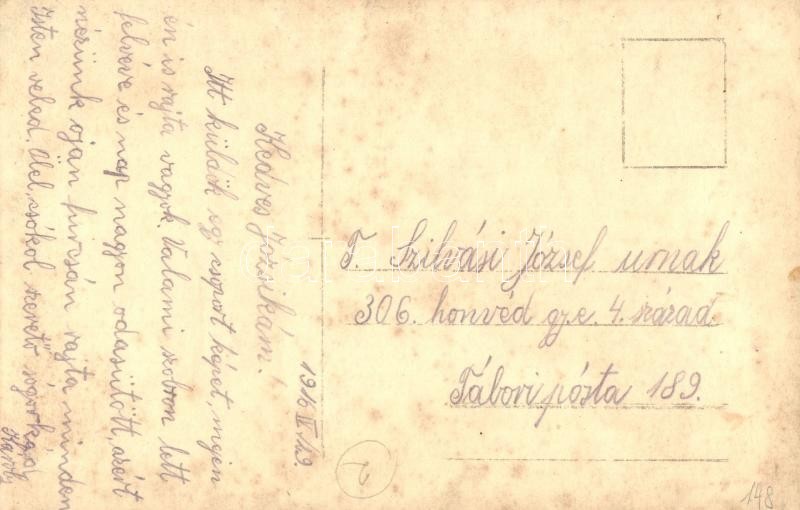 1916 IV/19.
Kedves Józsikám!
Itt küldök egy csoport képet, melyen
én is rajta vagyok. Valami szobron lett
felvéve és nap nagyon odasütött, azért
nézünk ojan furcsán rajta minden
Isten veled. Ölel, csókol szerető sógorkád
Karoly
T. Szilvási József urnak
306. honvéd gy.e. 4. század.
Tábori pósta 189.
148